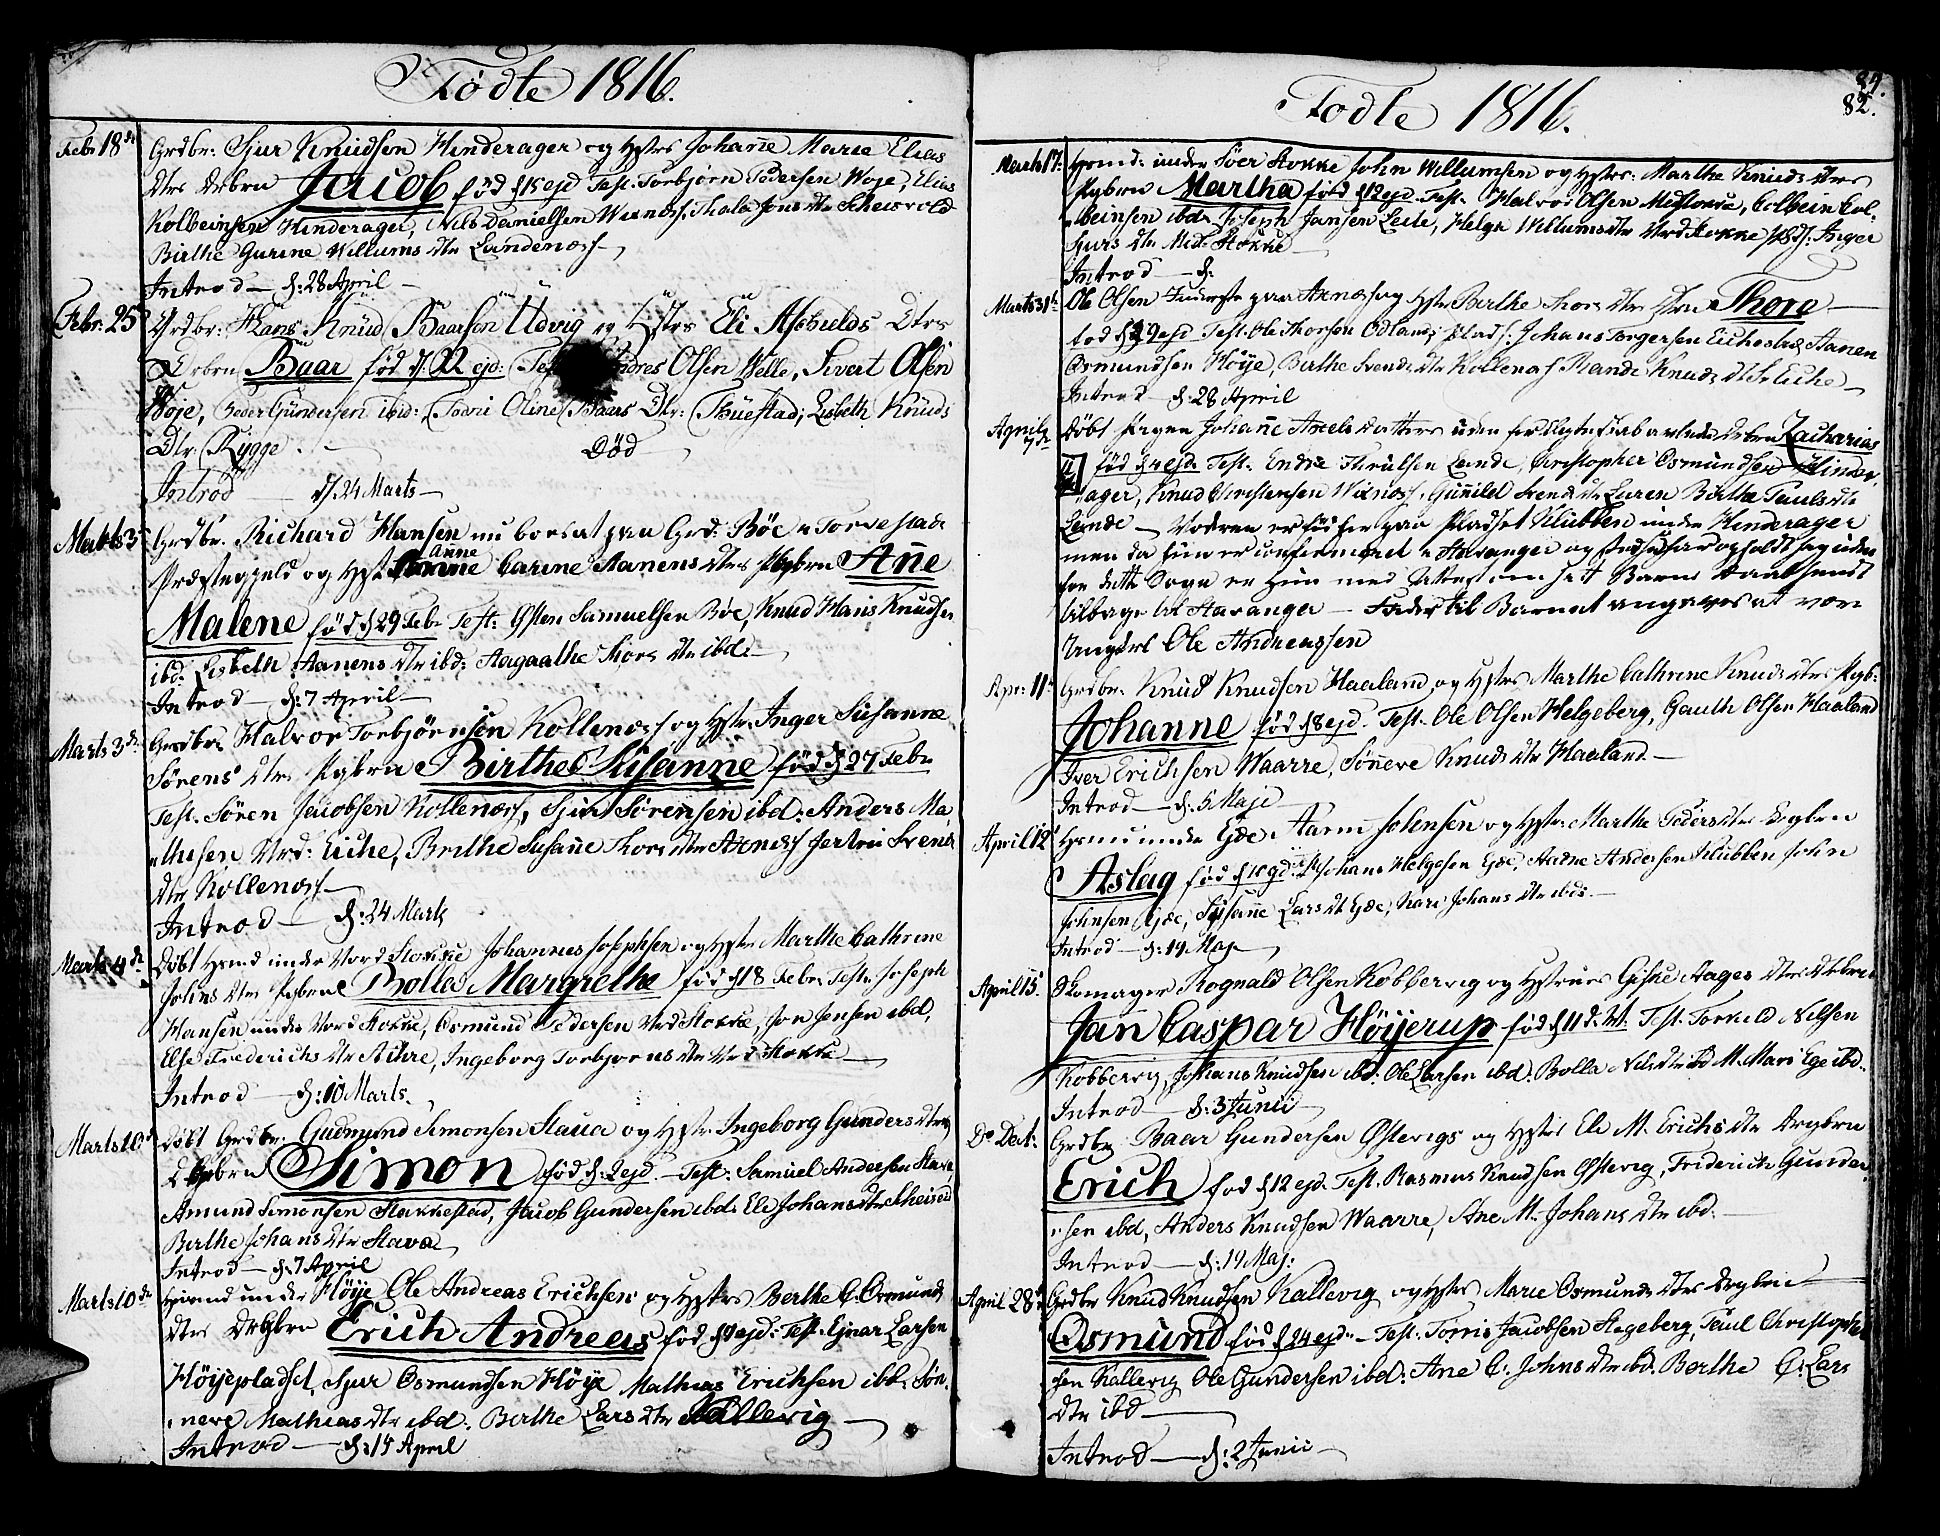 Fødte 1816.
Febr 18de Grdbr: Sjur Knudsen Hinderager og Hstrs Johane Marie Elias
Dtrs Drbrn Jacob fød d 15 ejd Test. Torbjørn Pedersen Woje, Elias
Kolbeinsen Hinderager, Nils Danielsen Wixnæs. Thala Jons Dtr
Birthe Gurine Willums Dtr Lundenæss
Introd — d: 28 April —
Febr. 25 Grdbr: Hans Knud Baarson Udvig og Hstrs Eli Asbulds Dtrs
Drbrn Baar fød d. 22 ejd: Test Andres Olsen Velle, Sivert Olsen
Woje, Peder Gundersen ibid: Torri Oline Baars Dtr: Tuestad; Lisbeth Knuds
Dtr. Rygge. — Død
Introd — d. 24 Marts —
Marts 3 Grdbr. Richard Hansen nu boesat paa Grd: Bøe i Torvestads
Præstegjeld og Hst Anne Carine Aanens Dtrs Pgbrn Ane
Malene fød d 29 Febr Test: Østen Samuelsen Bøe, Knud Hans Knudsen
ibd: Lisbeth Aanens Dtr ibd: Aagaathe Thors Dtr ibd:
Introd — d: 7 April —
Marts 3de Grdbr Halvor Torbjørnsen Kollenæss og Hstr: Inger Susanne
Sørens Dtrs Pgbrn Birthe Susanne fød d 27 Febr
Test. Søren Jacobsen Kollenæss, Sjur Sørensen ibd: Anders Ma,
thesen Nrd: Eiche, Brithe Susane Thors Dtr Arnæss Jertru Svends
Dtr Kollenæss
Introd — d: 24 Marts
Marts 4de Døbt Hsmd under Nord Stokke Johannes Josephsen og Hstr Marthe Cathrine
Johns Dtr Pgbrn Bolle Margrethe fød d 18 Febr. Test: Joseph
Hansen under Nord Stokke, Osmund Pedersen Nrd Stokke, Jon Jensen ibd,
Else Frederichs Dtr Aihre, Ingeborg Torbjorns Dtr Nrd Stokke
Introd — d: 10 Marts.
Marts 10de Døbt Grdbr. Gudmund Simonsen Stava og Hstr Ingeborg Gunders Dtrs
Drbrn Simon fød d: 2 ejd — Test: Samuel Andersen Stava
Amund Simonsen Stakkestad, Jacob Gundersen ibd: Eli Johans Dtr
Birthe Johans Dtr Stava
Introd — d. 7 April
Marts 10de Hsmd under Høye Ole Andreas Erichsen og Hstrs Berthe C. Osmunds
Dtrs Drgbrn Erich Andreas fød d ejd: Test. Ejnar Larsen
Høijepladset, Sjur Osmundsen Høije Mathias Erichsen ibd. Søn,
neve Mathias Dtr ibd. Berthe Lars Dtr Kallevig —
Introd — d: 15 April
84.
82.
Fodte 1816.
Marts 17. Hsmd: under Søer Stokke John Willumsen og Hstrs: Marthe Knuds Dtrs
Pgbrn Martha fød d 12 ejd. Test. Halvor Olsen Midstokke, Colbein Col,
beinsen ibd. Joseph Jansen Leite, Helge Willums Dtr Nord Stokke Inger
Sjurs Dtr Mid: Stokke —
Introd — d:
Marts 31te Ole Olsen Inderste paa Arnæs og Hstr Berthe Thors Dtr Dtn Thore —
fod d 29 ejd Test. Ole Thorsen Odlands plads: Johans Torgersen Aanen
Osmundsen Høije, Birthe Svends Dtr Kollenæs Rande Knuds Dtr S: Eiche —
Introd — d: 28 April
April 7de Døbt Pigen Johane Axels Datters uden for Ægteskab avlede Drbrn Zacharias
U Æ fød d 4 ejd. Test. Endre Thrulsen Lande, Christopher Osmundsen Hinder,
ager, Knud Christensen Wixnæss, Gunild Svends Dtr Luren Birthe Pauls Dtr
Lande — Moderen er fød her paa Pladset Klubben under Hinderager
men da hun er confirmeret i Stavanger og stedse har opholdt sig uden
for dette Sogn er hun med Attest om sit Barns Daab sendt
tilbage til Stavanger — Fader til Barnet angaves at være
Ungkrl Ole Andreassen
Apr: 11. Grdbr. Knud Knudsen Haaland og Hstrs Marthe Cathrine Knuds Dtrs Pgb:
Johanne fød d 8 ejd. Test. Ole Olsen Helgeberg, Gauth Olsen Haaland
Iver Erichsen Waarre, Søneve Knuds Dtr Haaland. —
Introd — d: 5 Maji
April 12 Hsm under Gje: Aarm Johnsen og Hstr: Marthe Peders Dtr Drgbrn
Aslag fød d 10 ejd: T Johans Helgesen Gje, Aadne Andersen Klubben, John
Johnsen Gje, Susane Lars Dt Gje, Kari Johans Dtr ibd: —
Introd — d: 19 Maji
April 15. Skomager Rognald Olsen Kobbervig og Hstrues Giske Aages Dtrs Drbrn
Jan Caspar Höijerup fød d 11 d: M: Test. Torkild Nilsen
Kobbervig, Johans Knudsen ibd: Ole Larsen ibd: Bolla Nils Dtr ibd M. Mari Ege ibd.
Introd — d: 3 Junii
Do Dat: Grdbr Baar Gundersen Østevigs og Hstrs Ele M. Erichs Dtr Drgbrn
Erich fød d 12 ejd. Test. Rasmus Knudsen Østevig, Friderich Gunder,
sen ibd, Anders Knudsen Waarre, Ane M. Johans Dtr ibd. —
Introd — d: 19 Maj:
April 28de Grdbr Knud Knudsen Kallevig og Hstrs Marie Osmunds Dtr Drgbrn
Osmund fød d 24 ejd — Test: Torris Jacobsen Stegeberg, Paul Christophe
sen Kallevig Ole Gundersen ibd: Ane C: Johns Dtr ibd. Berthe C: Lars
Dtr ibd —
Introd — d: 2 Junii —